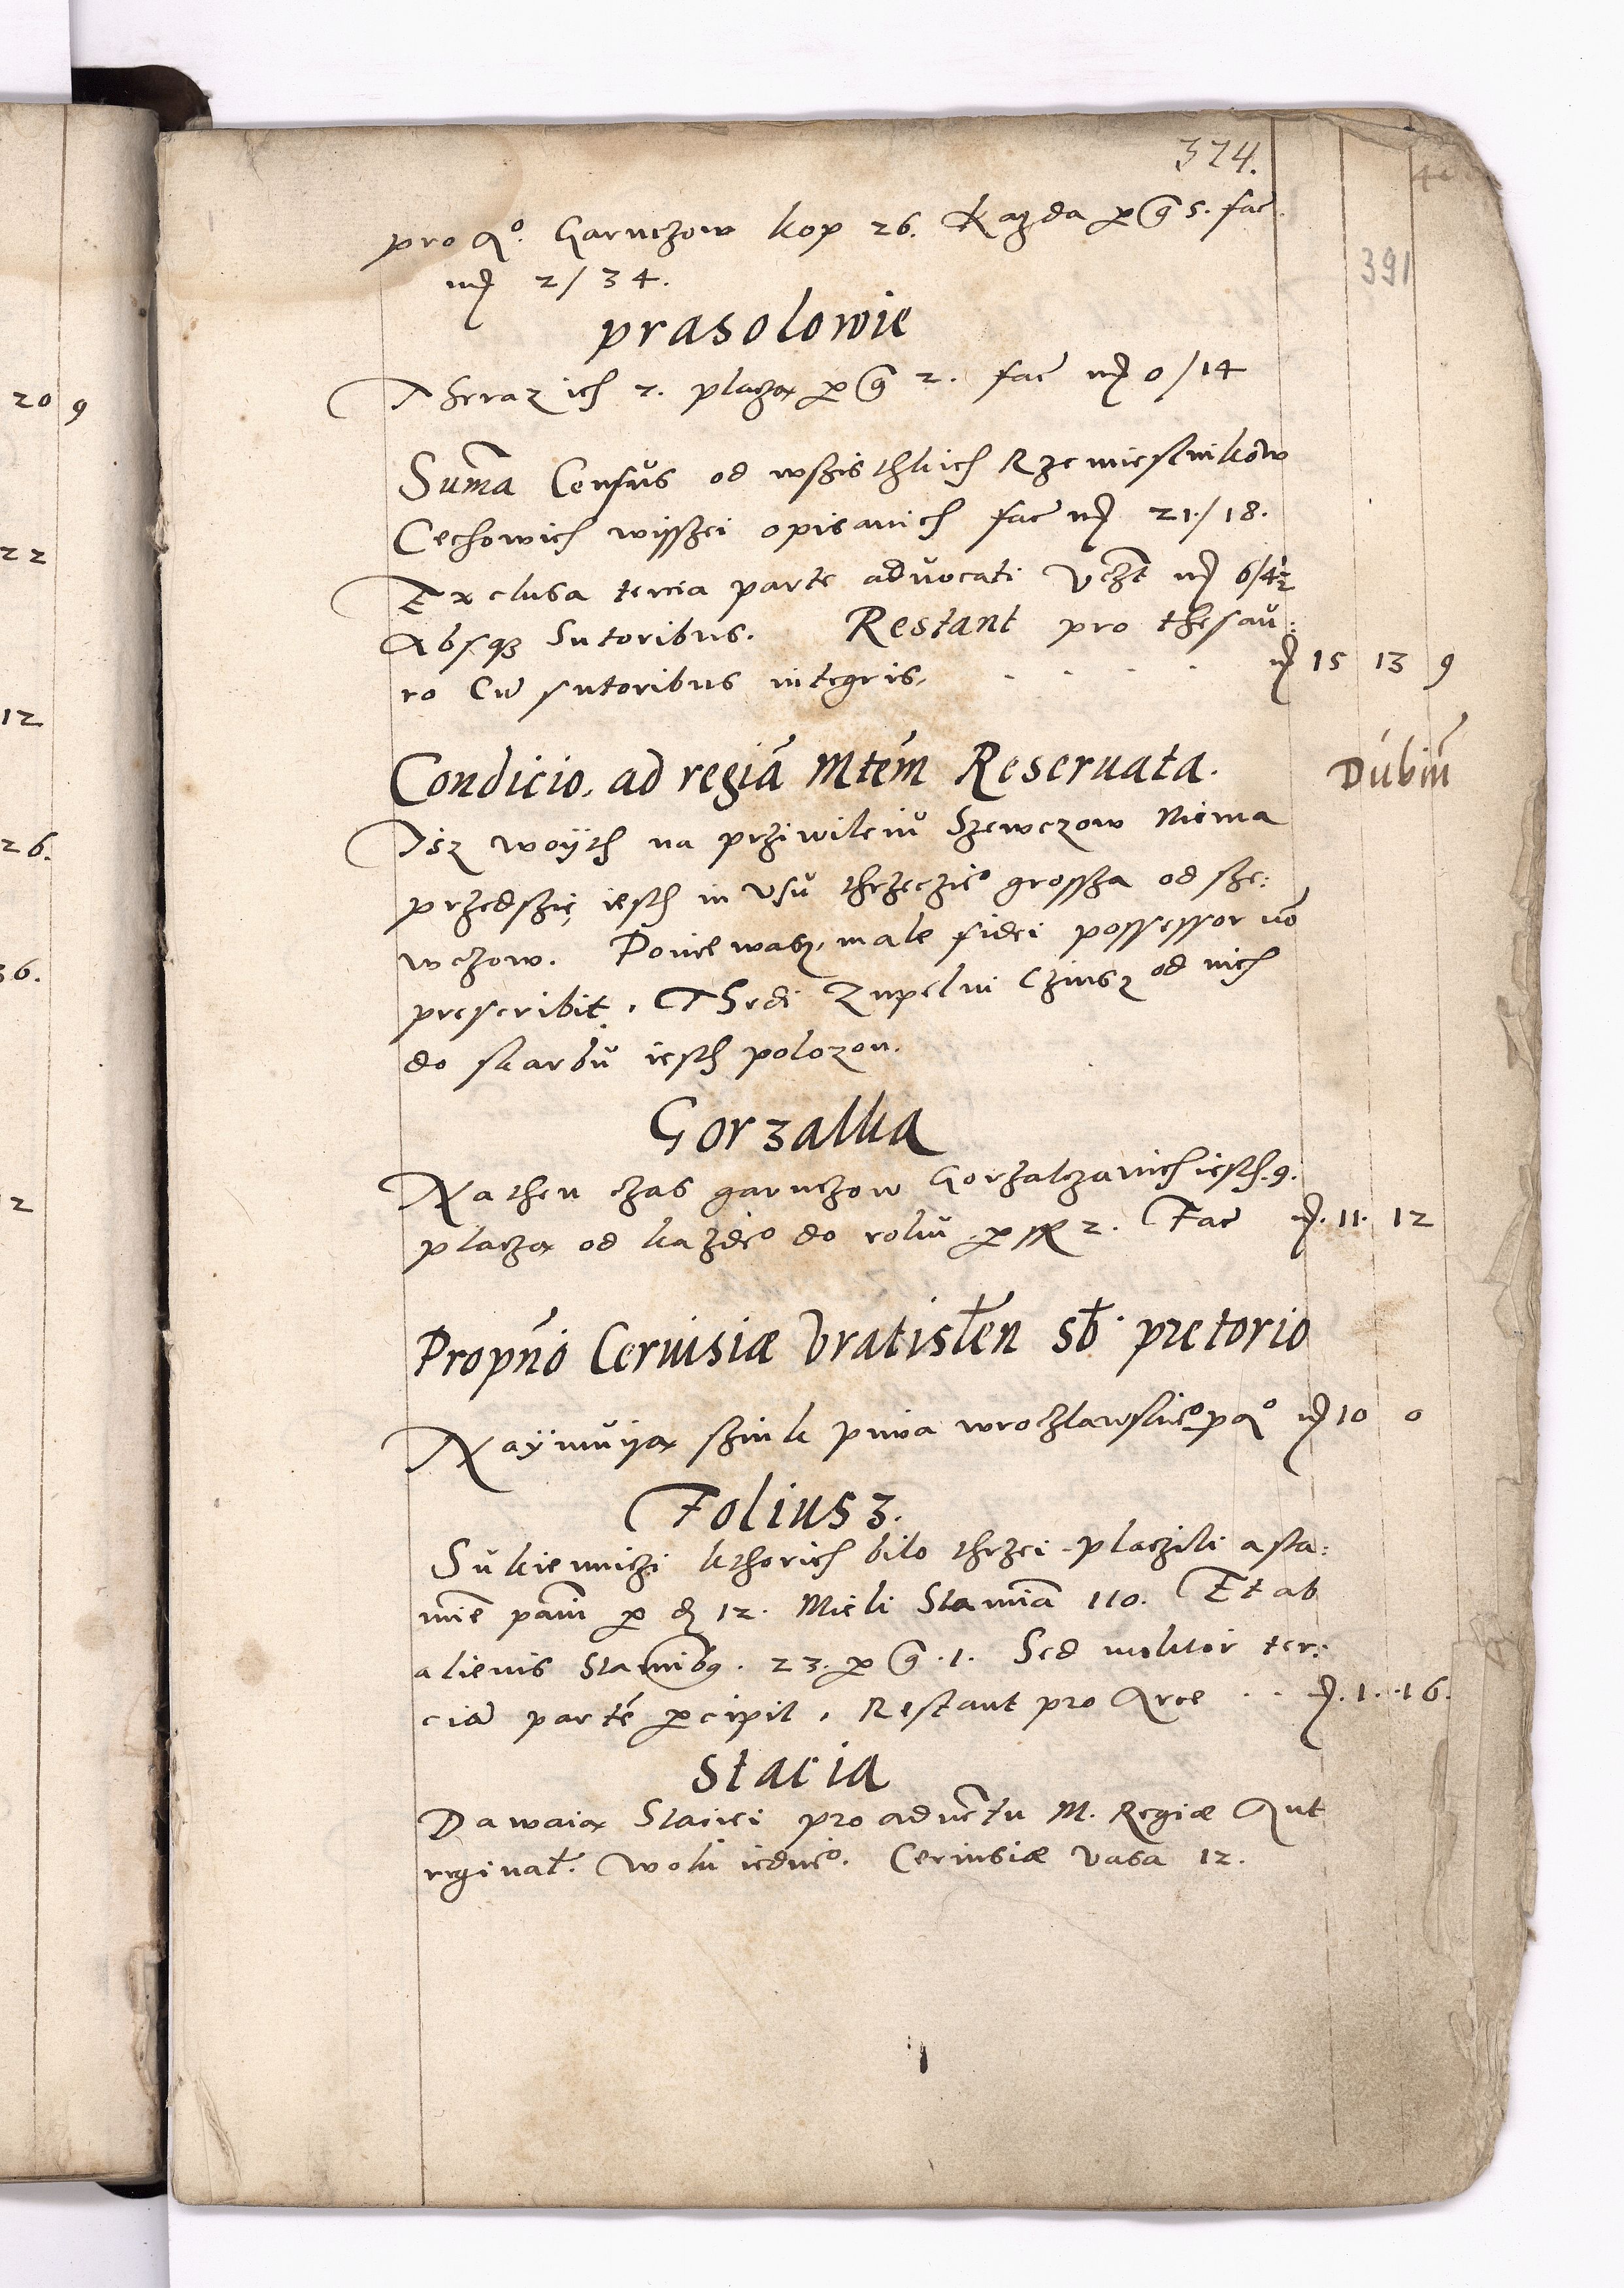 374.
391
pro Aº. Garnczow kop 26. Kazda per g 5. fac
mr 2/34.
prasolowie
Theraz ich 7. placzą per g 2. fac mr 0/14
Sum̃a Censŭs od wszisthkich Rzemieslnikow
Cechowich wisszei opisanich fac mr 21/18.
Exclusa tercia parte advocati Vczt mr 6/4½
Absq3 Sutoribus. Restant pro thesau:
ro Cū sutoribus integris. . . . . mr 15 13 9
Condicio, ad regiā Mtem̃ Reseruata. Dŭbiū
Isz woÿth na prziwileiŭ Szewczow Niema
przedszię iesth in Vsŭ thrzeczie° grossza od sze:
wczow. Poniewasz, male fidei possessor nō
prescribit. Thedi Zupelni Czinsz od nich
do skarbŭ iesth polozon.
Gorzalka
Na then czas garnczow Gorzalczanich iesth. 9.
placzą od kazde° do rokŭ per sex 2. Fac mr. 11. 12
Propñio Ceruisiæ Vratisłen sb̃. pretorio
Naÿmuÿą szink piwa wroczlawskie° p Aº mr 10 0
Foliusz.
Sŭkiennichi kthorich bilo thrzei placzili a sta:
mīe pañi per d 12. Mieli Stamiā 110. Et ab
alienis Stamib9. 23. per g .1. Sed molitor ter:
ciā partē percipit, Restant pro Arce . . mr. 1. 16.
Stacia
Dawaią Staciei pro aduentu M. Regiæ Aut
reginał. Wolŭ iedne°. Ceruisiæ Vasa 12.
20 9
22
12
26.
36.
2